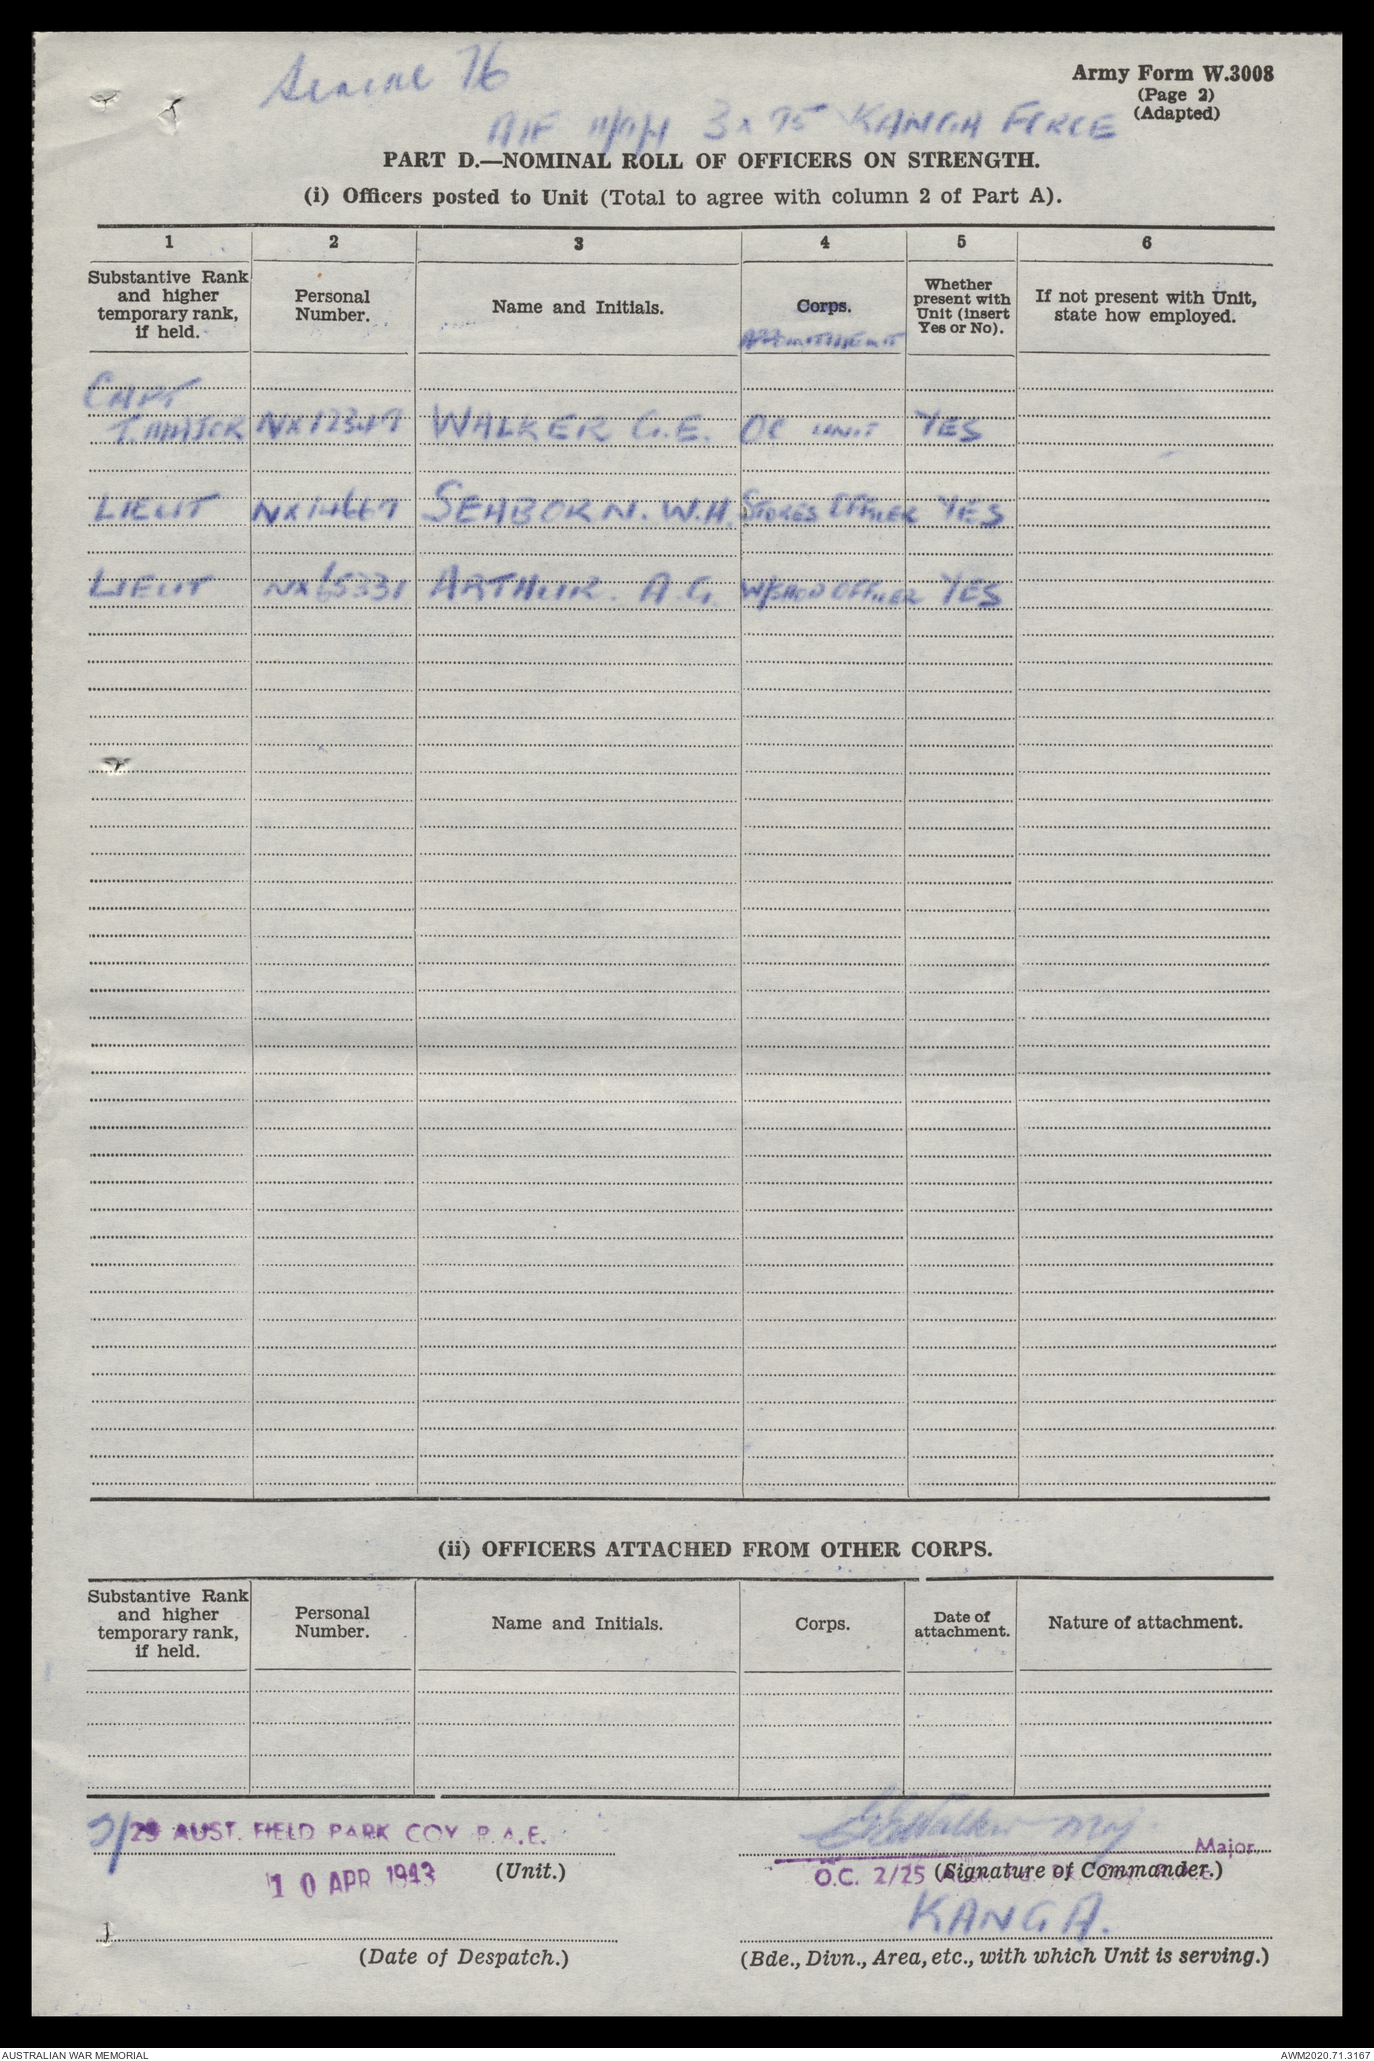 Serial 76
Army Form W.3008
(Page 2)
(Adapted)
AIF 11/1/4 3 x 75 KANGA FORCE
PART D.—NOMINAL ROLL OF OFFICERS ON STRENGTH.
(i) Officers posted to Unit (Total to agree with column 2 of Part A).
1 2 3 4 5 6
Substantive Rank and higher temporary rank, if held. Personal Number. Name and Initials. Corps. Whether present with Unit (insert Yes or No). If not present with Unit, state how employed.
CAPT
T. MAJOR NX12347 WALKER G.E. OC UNIT YES
LIEUT NX14667 SEABORN. W.H. STORES OFFICER YES
LIEUT NX65331 ARTHUR. A.G. W/SHOP OFFICER YES
(ii) OFFICERS ATTACHED FROM OTHER CORPS.
Substantive Rank and higher temporary rank, if held. Personal Number. Name and Initials. Corps. Date of attachment. Nature of attachment.
2/25 AUST. FIELD PARK COY R.A.E.
GE Walker Maj.
Major
(Unit.)
10 APR 1943
O.C. 2/25
(Signature of Commander.)
KANGA.
(Date of Despatch.)
(Bde., Divn., Area, etc., with which Unit is serving.)
AUSTRALIAN WAR MEMORIAL
AWM2020.71.3167